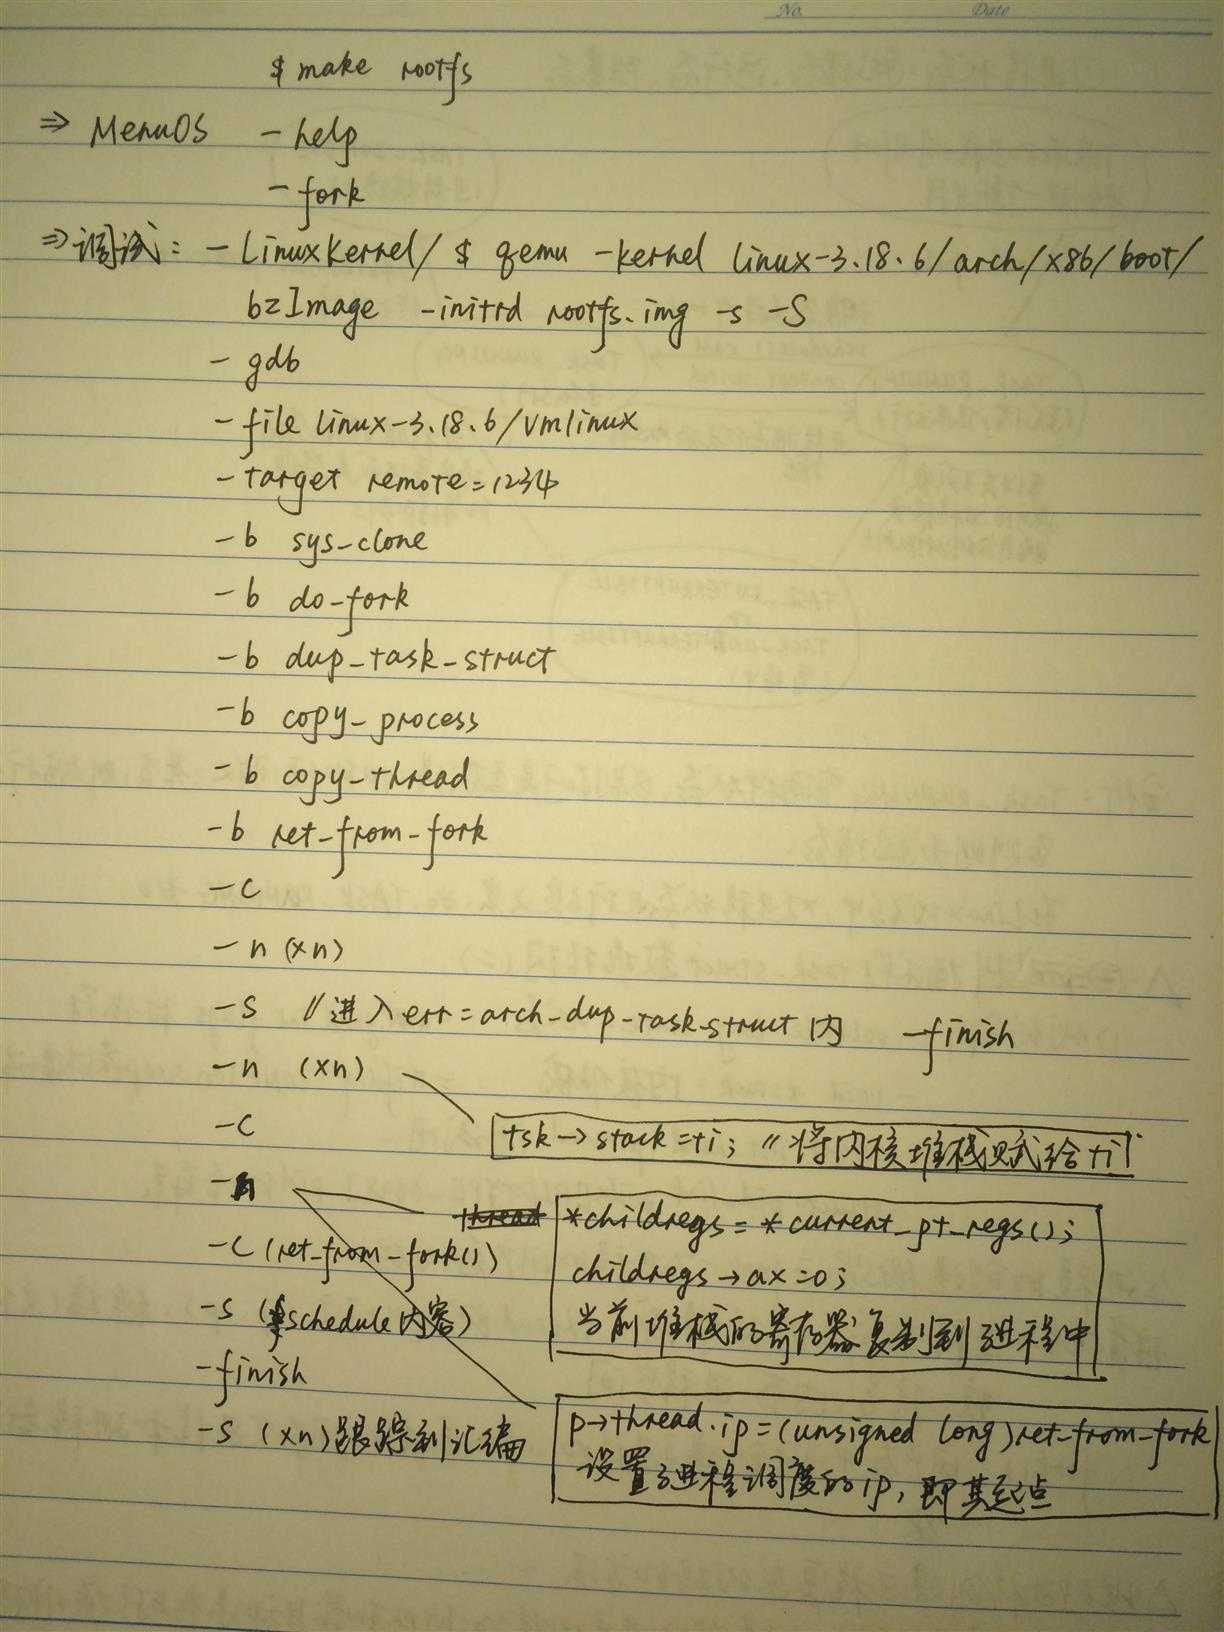 No. Date
$ make rootfs
⇒ MenuOS - help
- fork
⇒ 调试: - LinuxKernel/ $ qemu -kernel linux-3.18.6/arch/x86/boot/
bzImage -initrd rootfs.img -s -S
- gdb
- file linux-3.18.6/vmlinux
- target remote=1234
- b sys_clone
- b do_fork
- b dup_task_struct
- b copy_process
- b copy_thread
- b ret_from_fork
- c
- n (xn)
- s //进入err=arch_dup_task_struct内 -finish
- n (xn)
- c
tsk→stack=ti; //将内核堆栈赋给ti
- n
thread *childregs = *current_pt_regs();
- c (ret_from_fork())
childregs→ax=0;
- s (schedule内容)
当前堆栈的寄存器复制到子进程中
- finish
- s (xn)跟踪到汇编
p→thread.ip=(unsigned long)ret_from_fork
设置子进程调度的ip,即其起点